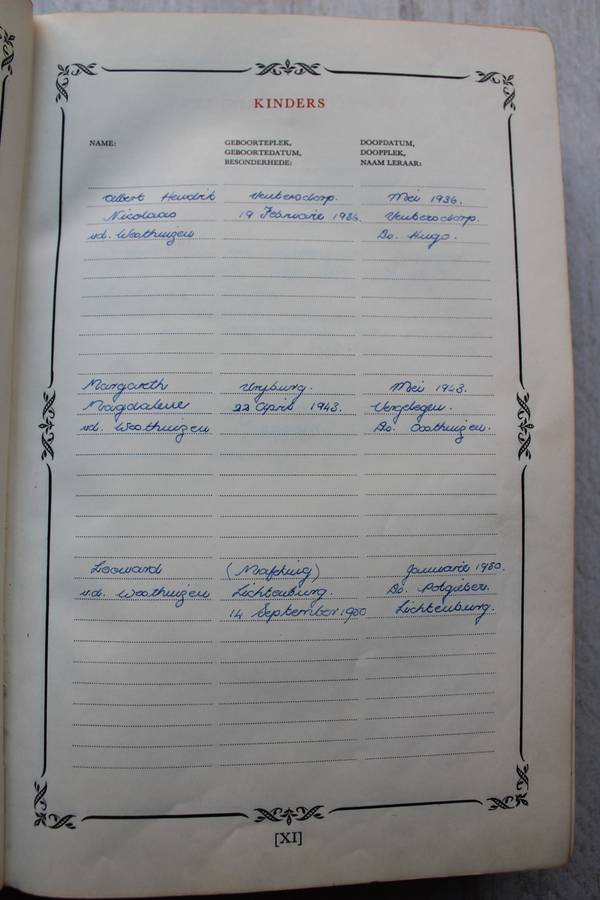 KINDERS
NAME: GEBOORTEPLEK, DOOPDATUM,
GEBOORTEDATUM, DOOPPLEK,
BESONDERHEDE: NAAM LERAAR:
Albert Hendrik Ventersdorp. Mei 1936.
Nicolaas 19 Februarie 1936. Ventersdorp.
v.d. Westhuizen Ds. Hugo.
Margareth Vryburg. Mei 1943.
Magdalene 22 April 1943. Vergelegen.
v.d. Westhuizen Ds. Oosthuizen.
Leoward (Mafeking) Januarie 1950.
v.d. Westhuizen Lichtenburg. Ds. Potgieter.
14 September Lichtenburg.
[XI]